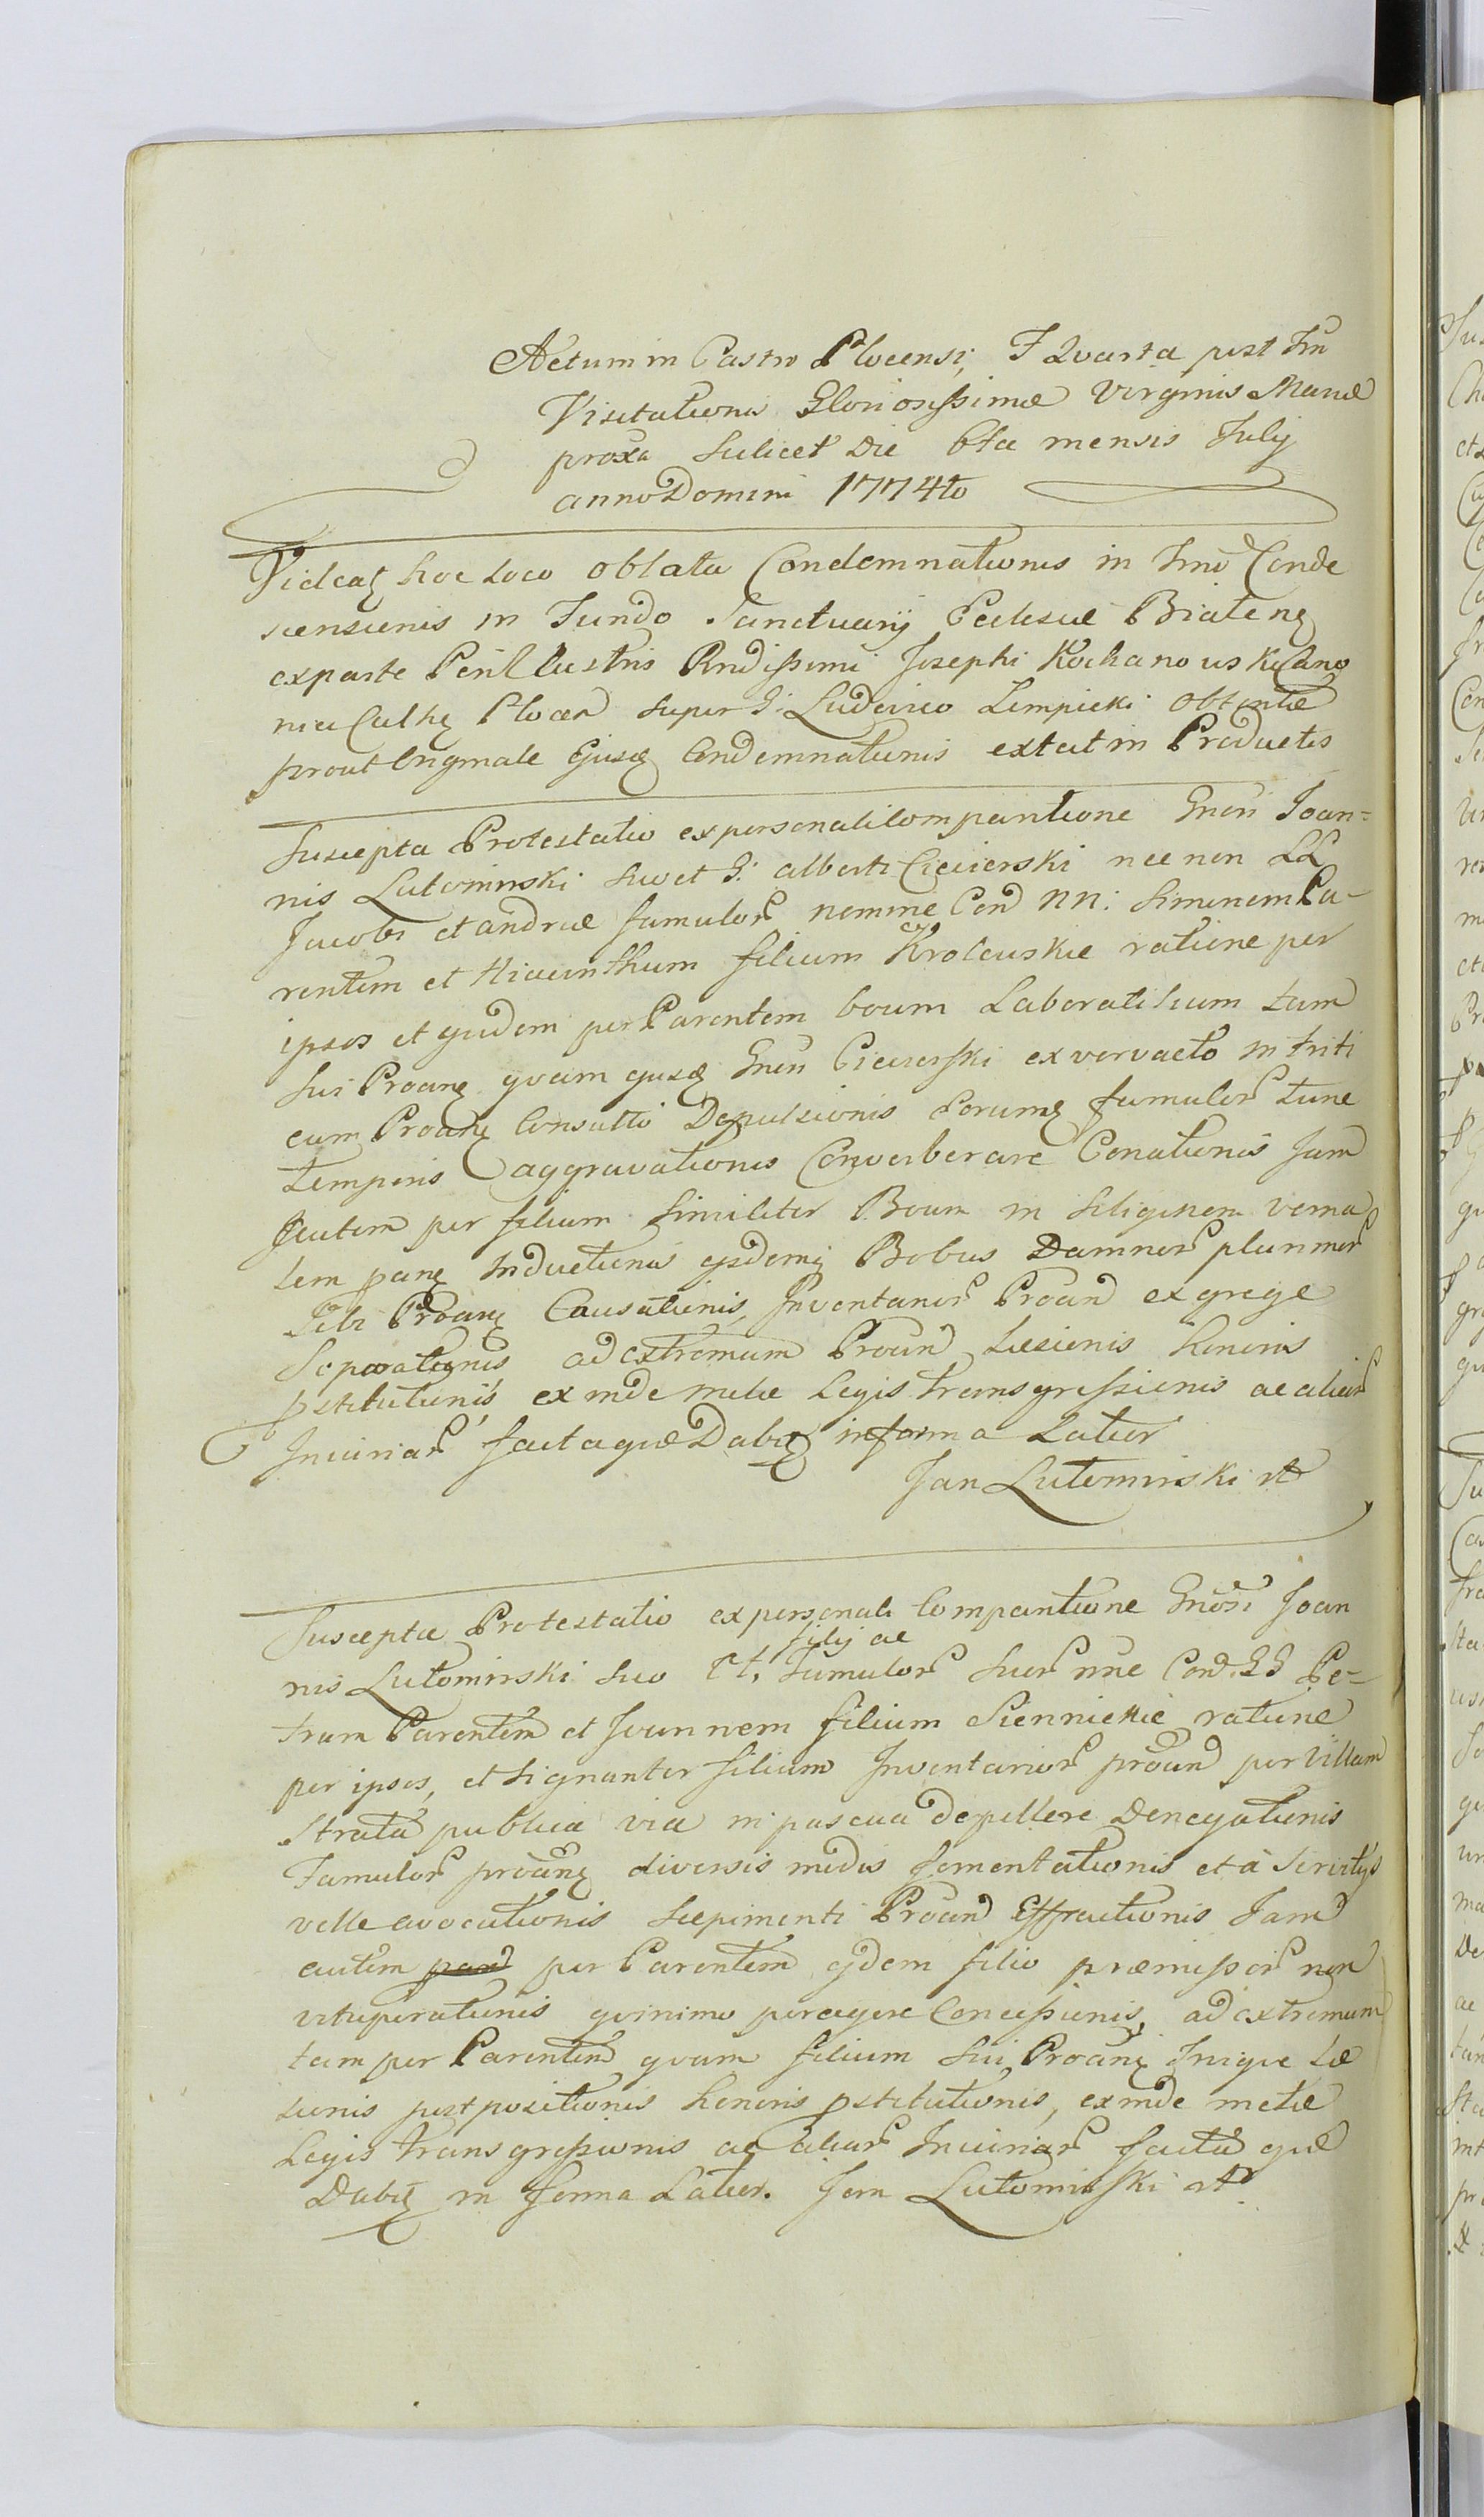 Actum in Castro Plocensi, F Quarta post Fm
Visitationis Gloriosissimæ Virginis Mariæ
proxa scilicet Die 6ta mensis Julij
anno Domini 1774to
Videatz hoc Loco oblata Condemnationis in Fmo Conde
scensionis in Fundo Sanctuarij Eclesiæ
ex parte Perillustris Rndissimi Josephi Kochanowski Cano
nici Cathz Plocen super G: Ludovico Lempicki obtentæ
prout Originale Ejusdz Condemnationis extat in Productis
Suscepta Protestatio ex personali Comparitione Gnosi Joan=
nis Lutomirski suo et G: Alberti Ciecierski nec non LL
Jacobi et Andreæ famulor nomine Con NN: Simonem Pa-
rentem et Hiacinthum filium Krolewskie ratione per
ipsos et quidem per Parentem boum Laboratilium tam
sui Proanz quam ejusdz Gnosi Ciecierski ex vervacto in triti
cum Proanz Consulto Depulsionis eorumqz famulor tunc
temporis aggravationis Converberare Conationis Jam
autem per filium similiter Boum in siliginem verna
lem panz Inductionis ejsdemqz Bobus Damnor plurimor
sibi Proanz Causationis, Inventarior Proan ex grege
Separationis ad extremum Proan Læsionis honoris
pstitutionis ex inde metæ Legis transgressionis ac aliar
Iniuriar factaque Dabitz in forma Latior
Jan Lutomirski
Suscepta Protestatio ex personali Comparitione Gnosi Joan
nis Lutomirski suo et, filij ac Famulor suor nne Con GG Pe-
trum Parentem et Joannem filium Siennickie ratione
per ipsos, et signanter filium Inventarior proan per Villam
strata publica via in pascua depellere Denegationis
Famulor proanz diversis modis fomentationis et a Servitijs
velle avocationis Sæpimenti Proan Effractionis Jam
autem per Parentem ejdem filio præmissor non
vituperationis quinimo peragere Concessionis, ad extremum
tam per Parentem quam filium sui Proanz Inique Læ
sionis postpositionis honoris pstitutionis, ex inde metæ
Legis transgressionis ac aliar Iniuriar facta que
Dabitz in forma Latior. Jan Lutomirski